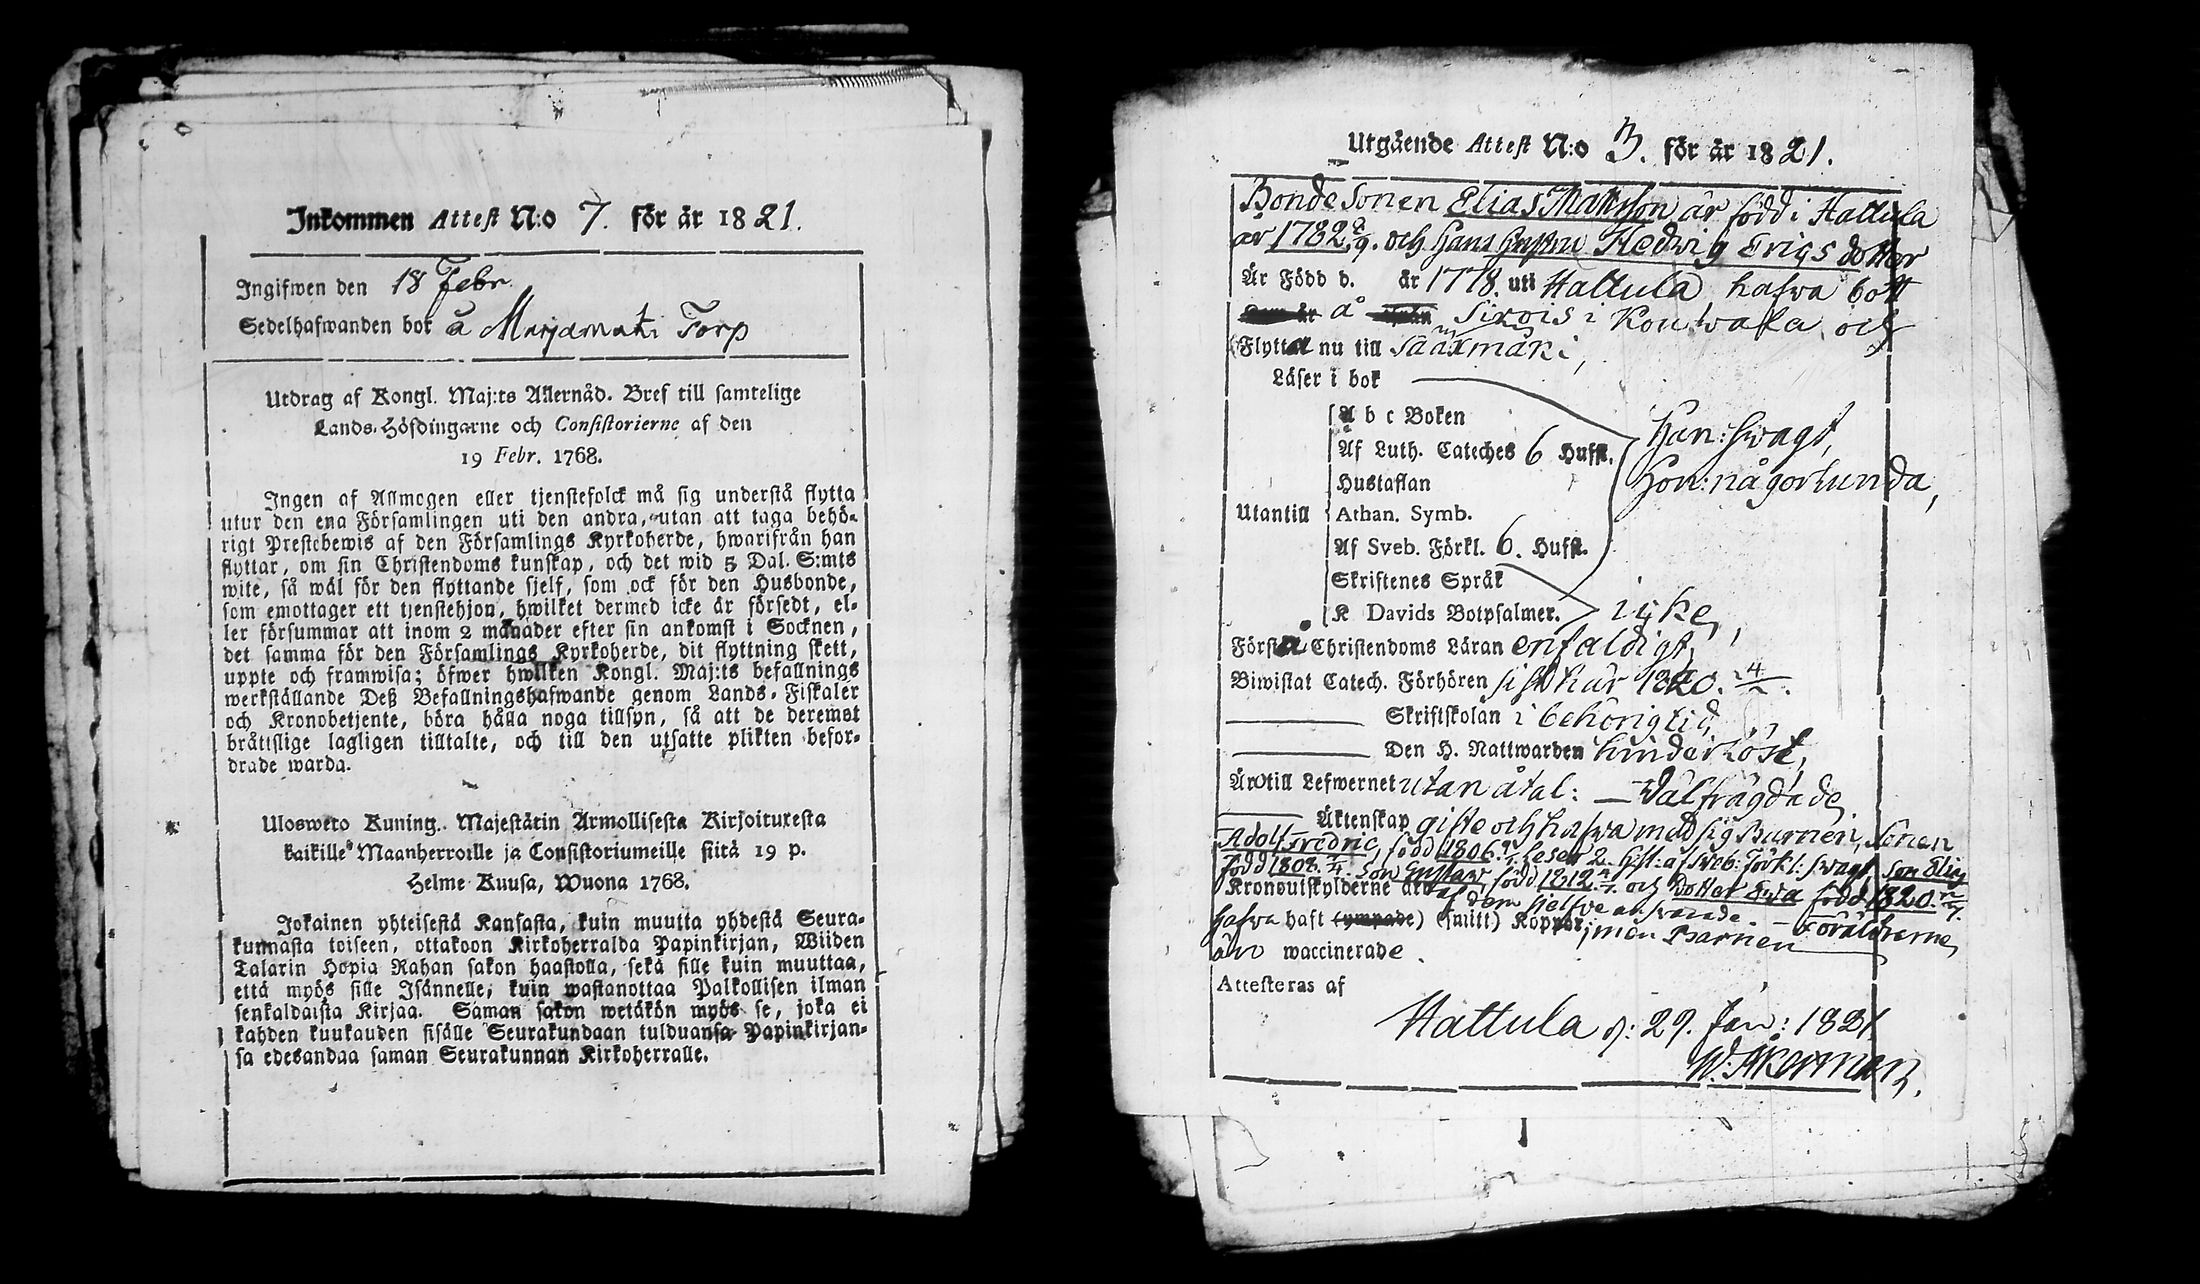 Inkommen Attest N:o 7. för år 1821.
Ingifwen den 18 Febr.
Sedelhafwanden bor å Marjamäki Torp
Utdrag af Kongl. Maj:ts Allernåd. Bref till samtelige
Lands-Höfdingarne och Consistorierne af den
19 Febr. 1768.
Ingen af Allmogen eller tjenstefolck må sig understå flytta
utur den ena Församlingen uti den andra, utan att taga behö-
rigt Prestebewis af den Församlings Kyrkoherde, hwarifrån han
flyttar, om sin Christendoms kunskap, och det wid 5 Dal. S:mts
wite, så wäl för den flyttande sjelf, som ock för den Husbonde,
som emottager ett tjenstehjon, hwilket dermed icke är försedt, el-
ler försummar att inom 2 månader efter sin ankomst i Socknen,
det samma för den Församlings Kyrkoherde, dit flyttning skett,
uppte och framwisa; öfwer hwilken Kongl. Maj:ts befallnings
werkställande Deß Befallningshafwande genom Lands-Fiskaler
och Kronobetjente, böra hålla noga tillsyn, så att de deremot
bråttslige lagligen tilltalte, och till den utsatte plikten befor-
drade warda.
Ulosweto Kuning. Majestätin Armollisesta Kirjoituresta
kaikille Maanherroille ja Consistoriumeille siitä 19 p.
Helme Kuusa, Wuona 1768.
Jokainen yhteisestä Kansasta, kuin muutta yhdestä Seura-
kunnasta toiseen, ottakoon Kirkoherralda Papinkirjan, Wiiden
Talarin Hopia Rahan sakon haastolla, sekä sille kuin muuttaa,
että myös sille Isännelle, kuin wastanottaa Palkollisen ilman
senkaldaista Kirjaa. Saman sakon wetäkön myös se, joka ei
kahden kuukauden sisälle Seurakundaan tulduansa Papinkirjan-
sa edesandaa saman Seurakunnan Kirkoherralle.
Utgående Attest N:o 3. för år 1821.
Bonde Sonen Elias Mattsson är född i Hattula
år 1782 och Hans Hustru Hedwig Erigs dotter
Är Född d. år 1778. uti Hattula, hafwa bott
å Sirois i Konwala, och
Flytta nu till Sääxmäki,
Läser i bok
A b c Boken
Af Luth. Cateches 6 Hufst.
Hustaflan
Utantill Athan. Symb.
Af Sveb. Förkl. 6. Hufst.
Skriftenes Språk
K Davids Botpsalmer.
Han: swagt,
Hon: någorlunda,
icke,
Första Christendoms Läran enfaldigt,
Biwistat Catech. Förhören sistl. här 1820.
Skriftskolan i behörig tid,
Den H. Nattwarden hinderlöst,
Äro till Lefwernet utan åtal: — Wälfrägdade
Äktenskap gifte och hafwa med sig Barnen, Sonen
Adolf Fredric, född 1806. läser 2. Hfst: af Sveb: Förkl: swagt, Son Elig
född 1808. Son Gustaw född 1812. och Dotter Ewa född 1820.
Kronoutskylderne äro af dem sjelfve answarade. — Föräldrerne
hafwa haft (ympade) (smitt) Koppor, men Barnen
äro waccinerade.
Attesteras af
Hattula d: 29. Jan: 1821
W. Åkerman.